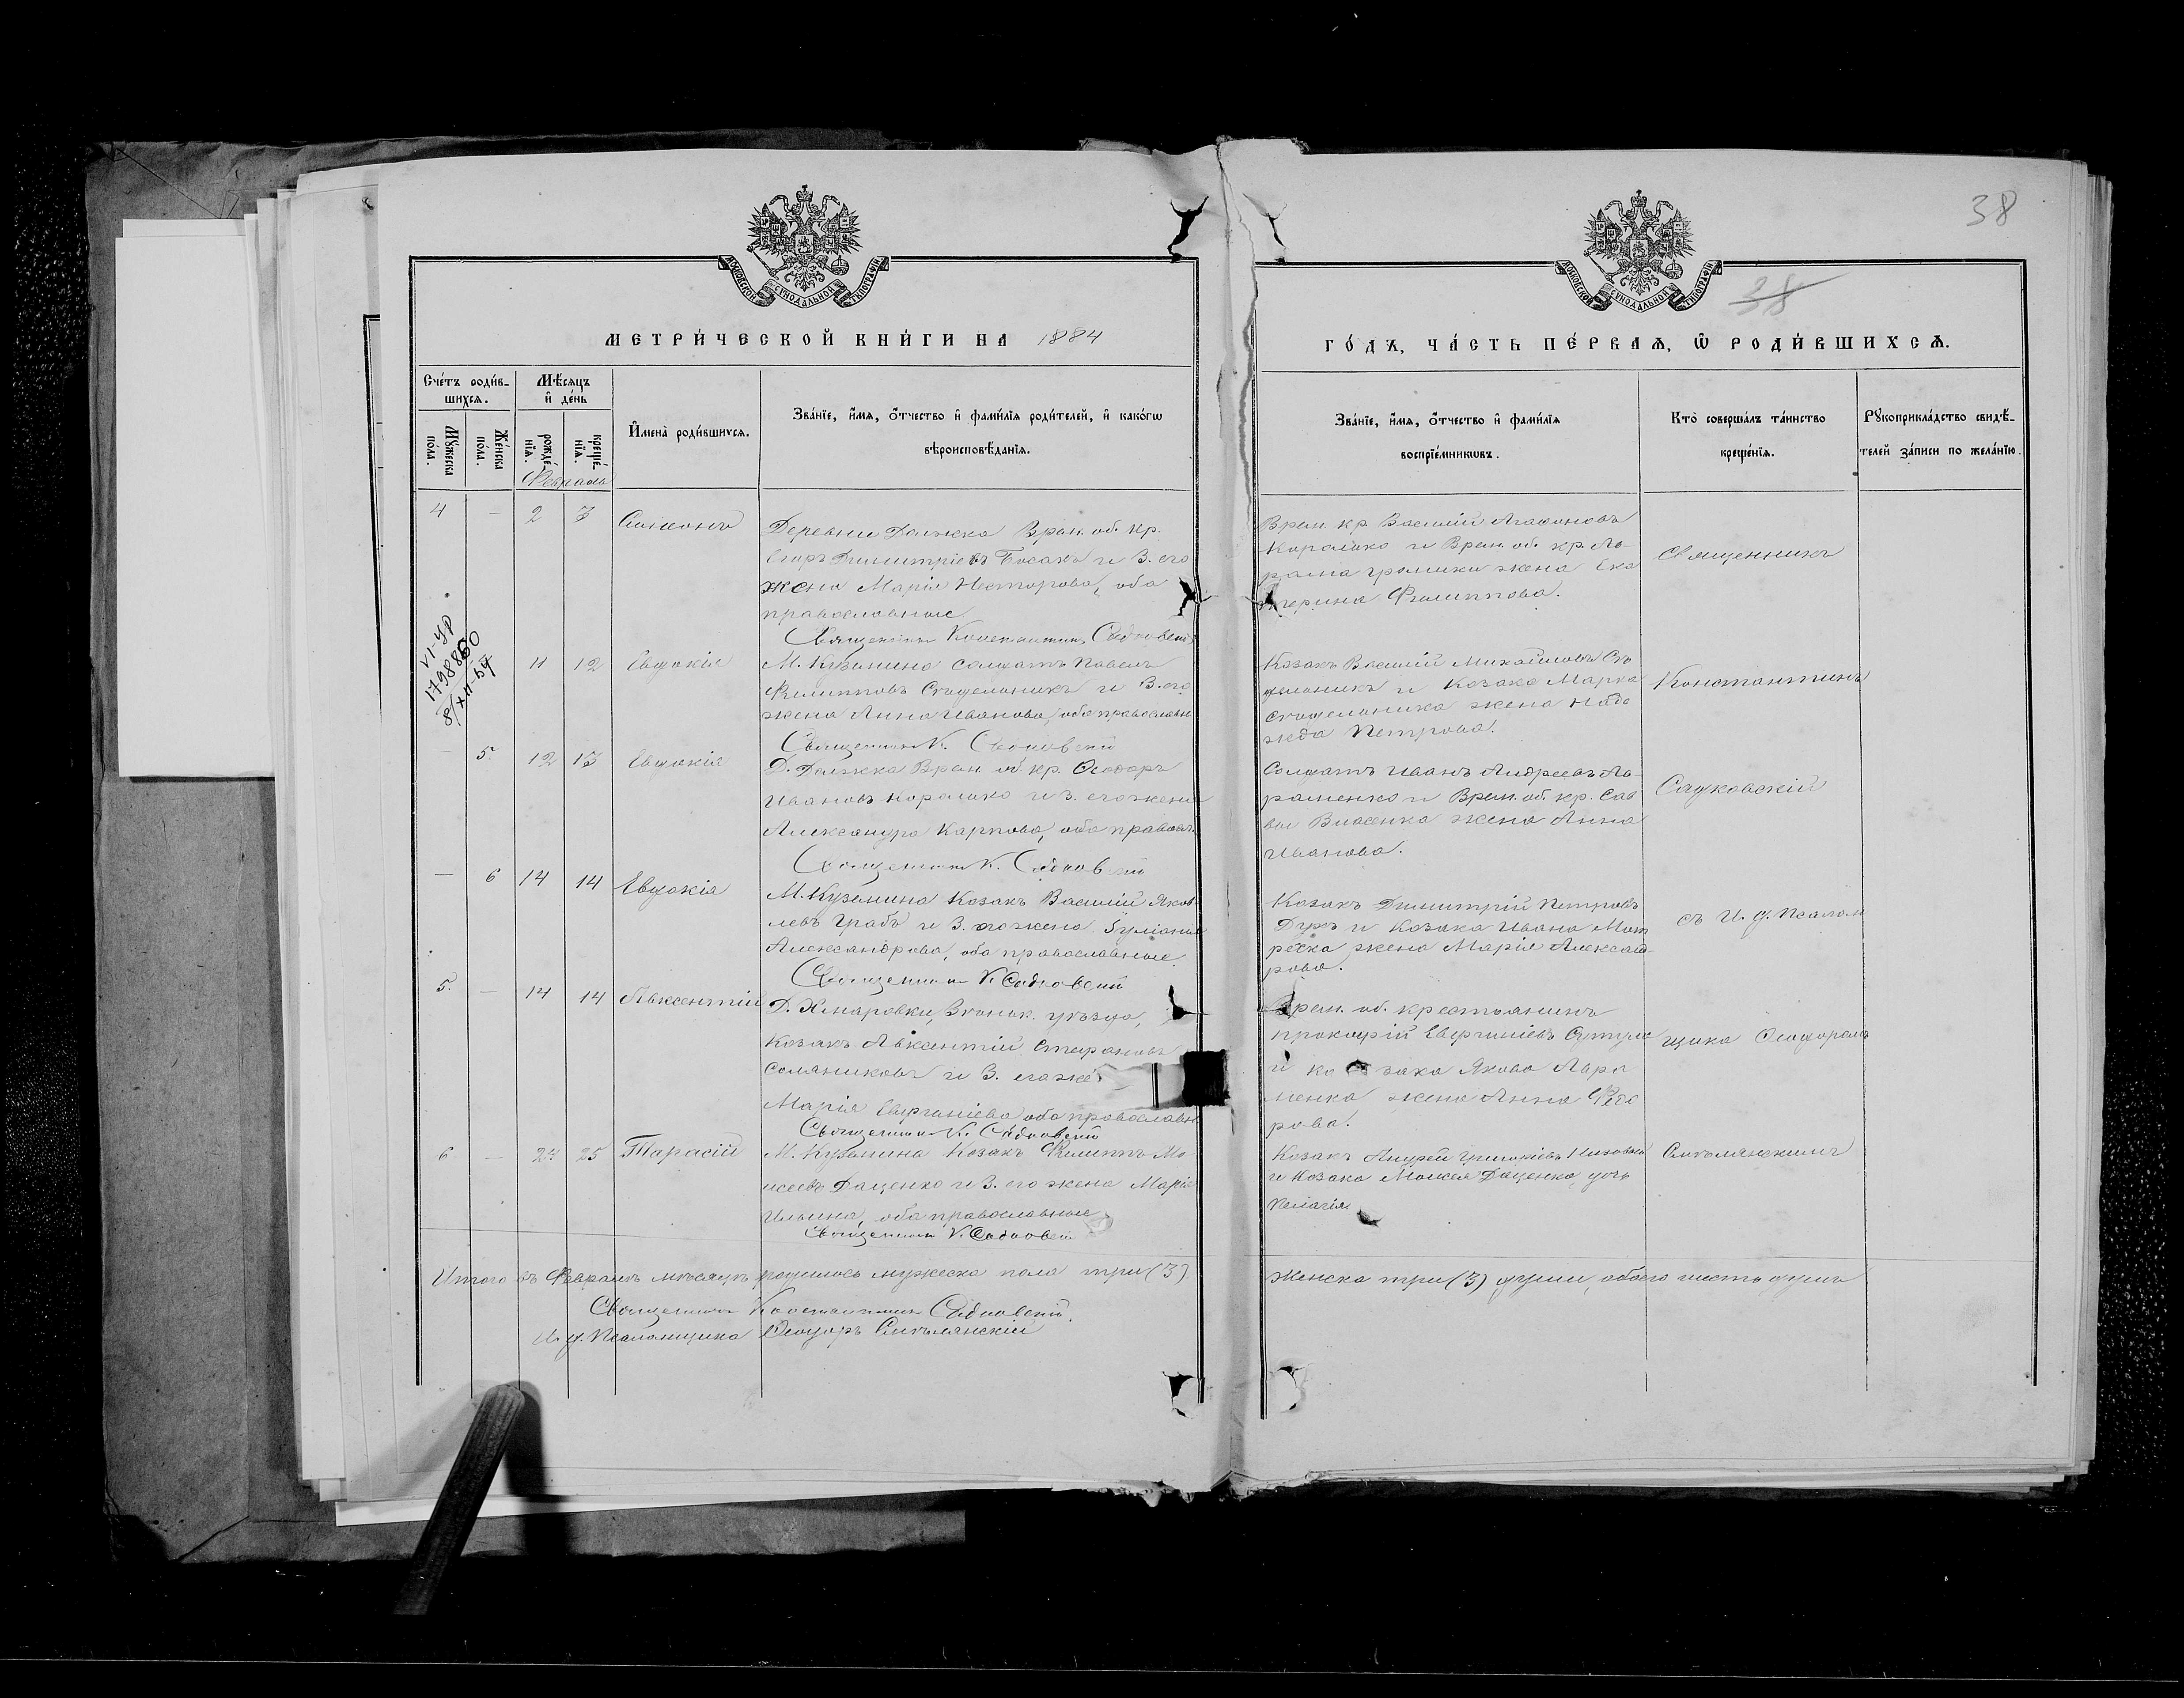 38
38
МОСКОВСКОЙ СѴНОДАЛЬНОЙ ТИПОГРАФІИ
МОСКОВСКОЙ СѴНОДАЛЬНОЙ ТИПОГРАФІИ
МЕТРИ́ЧЕСКОЙ КНИ́ГИ НА 1884
ГО́ДЪ, ЧА́СТЬ ПЕ́РВАѦ, Ѡ РОДИ́ВШИХСѦ.
Сче́тъ роди́в-
шихсѧ.
Мꙋ́жеска по́ла.
Же́нска по́ла.
Мѣ́сѧцъ
и҆ де́нь
рожде́нїѧ.
креще́нїѧ.
Февраль
И҆мена̀ роди́вшихсѧ.
Зва́нїе, и҆́мѧ, ѻ҆́тчество и҆ фами́лїѧ роди́телей, и҆ како́гѡ
вѣроисповѣ́данїѧ.
Зва́нїе, и҆́мѧ, ѻ҆́тчество и҆ фами́лїѧ
воспрїе́мникѡвъ.
Кто̀ соверша́лъ та́инство
креще́нїѧ.
Рꙋкоприкла́дство свидѣ́-
телей за́писи по жела́нїю.
4 – 2 7
Деревни Должка Врем. об. кр.
Егоръ Димитріевъ Босакъ и З. его
жена Марія Несторова, оба
православные
Священникъ Константинъ Садковскій
Врем. кр. Василій Агафоновъ
Коралько и Врем. об. кр. Ав-
рама жена Ека
терина Филиппова.
Священникъ
VI-УР
179886
8/XII-54
11 12 Евдокія
М. Кузьмина солдатъ Павелъ
Филипповъ и З. его
жена Анна Иванова, оба православн
Священникъ К. Садковскій
Козакъ Василій Михайловъ
и Козака Марка
жена Наде
жда Петрова.
Константинъ
– 5. 12 13 Евдокія
Д. Должка Врем. об. кр. Ѳеодоръ
Ивановъ Коралько и З. его жена
Александра Карпова, оба правосл.
Священникъ К. Садковскій
Солдатъ Иванъ Андреевъ Ав-
раменко и Врем. об. кр. Сав
вы Власенка жена Анна
Иванова.
Садковскій
– 6 14 14 Евдокія
М. Кузьмина Козакъ Василій Яков
левъ Грабъ и З. его жена Іуліанія
Александрова, оба православные
Священникъ К. Садковскій
Козакъ Димитрій Петровъ
и Козака Ивана
жена Марія Александ-
рова.
съ И. д. Псалом
5. – 14 14 Авксентій
Д. Хмаровки, уѣзда,
Козакъ Авксентій Стефановъ
и З. его же
Марія Евфиміева оба православн
Священникъ К. Садковскій
Врем. об. крестьянинъ
Прокофій
и козака Якова
жена Анна Фео
рова.
щика Ѳеодоромъ
6 – 24 25 Тарасій
М. Кузьмина Козакъ Филиппъ Мо
исеевъ Даценко и З. его жена Марія
Ильина, оба православные
Священникъ К. Садковскій
Козакъ Андрей Григоріевъ
и Козака Моисея Даценка дочь
Пелагія
Смѣлянскимъ
Итого въ Февралѣ мѣсяцѣ родилось мужеска пола три (3)
женска три (3) души, обоего шесть душъ
Священникъ Константинъ Садковскій.
И. д. Псаломщика Ѳеодоръ Смѣлянскій